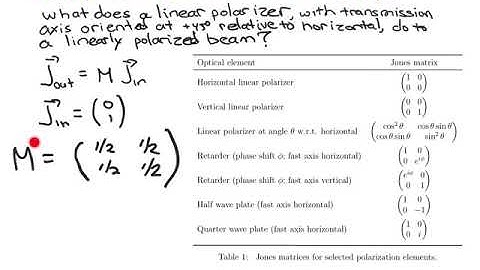 what does a linear polarizer, with transmission
axis oriented at +45° relative to horizontal, do to
a linearly polarized beam?
J⃗out = M J⃗in
J⃗in = (0
1)
M = (1/2 1/2
1/2 1/2)
Optical element Jones matrix
Horizontal linear polarizer (1 0
0 0)
Vertical linear polarizer (0 0
0 1)
Linear polarizer at angle θ w.r.t. horizontal (cos²θ cosθ sinθ
cosθ sinθ sin²θ)
Retarder (phase shift ϕ; fast axis horizontal) (1 0
0 e^iϕ)
Retarder (phase shift ϕ; fast axis vertical) (e^iϕ 0
0 1)
Half wave plate (fast axis horizontal) (1 0
0 −1)
Quarter wave plate (fast axis horizontal) (1 0
0 i)
Table 1: Jones matrices for selected polarization elements.